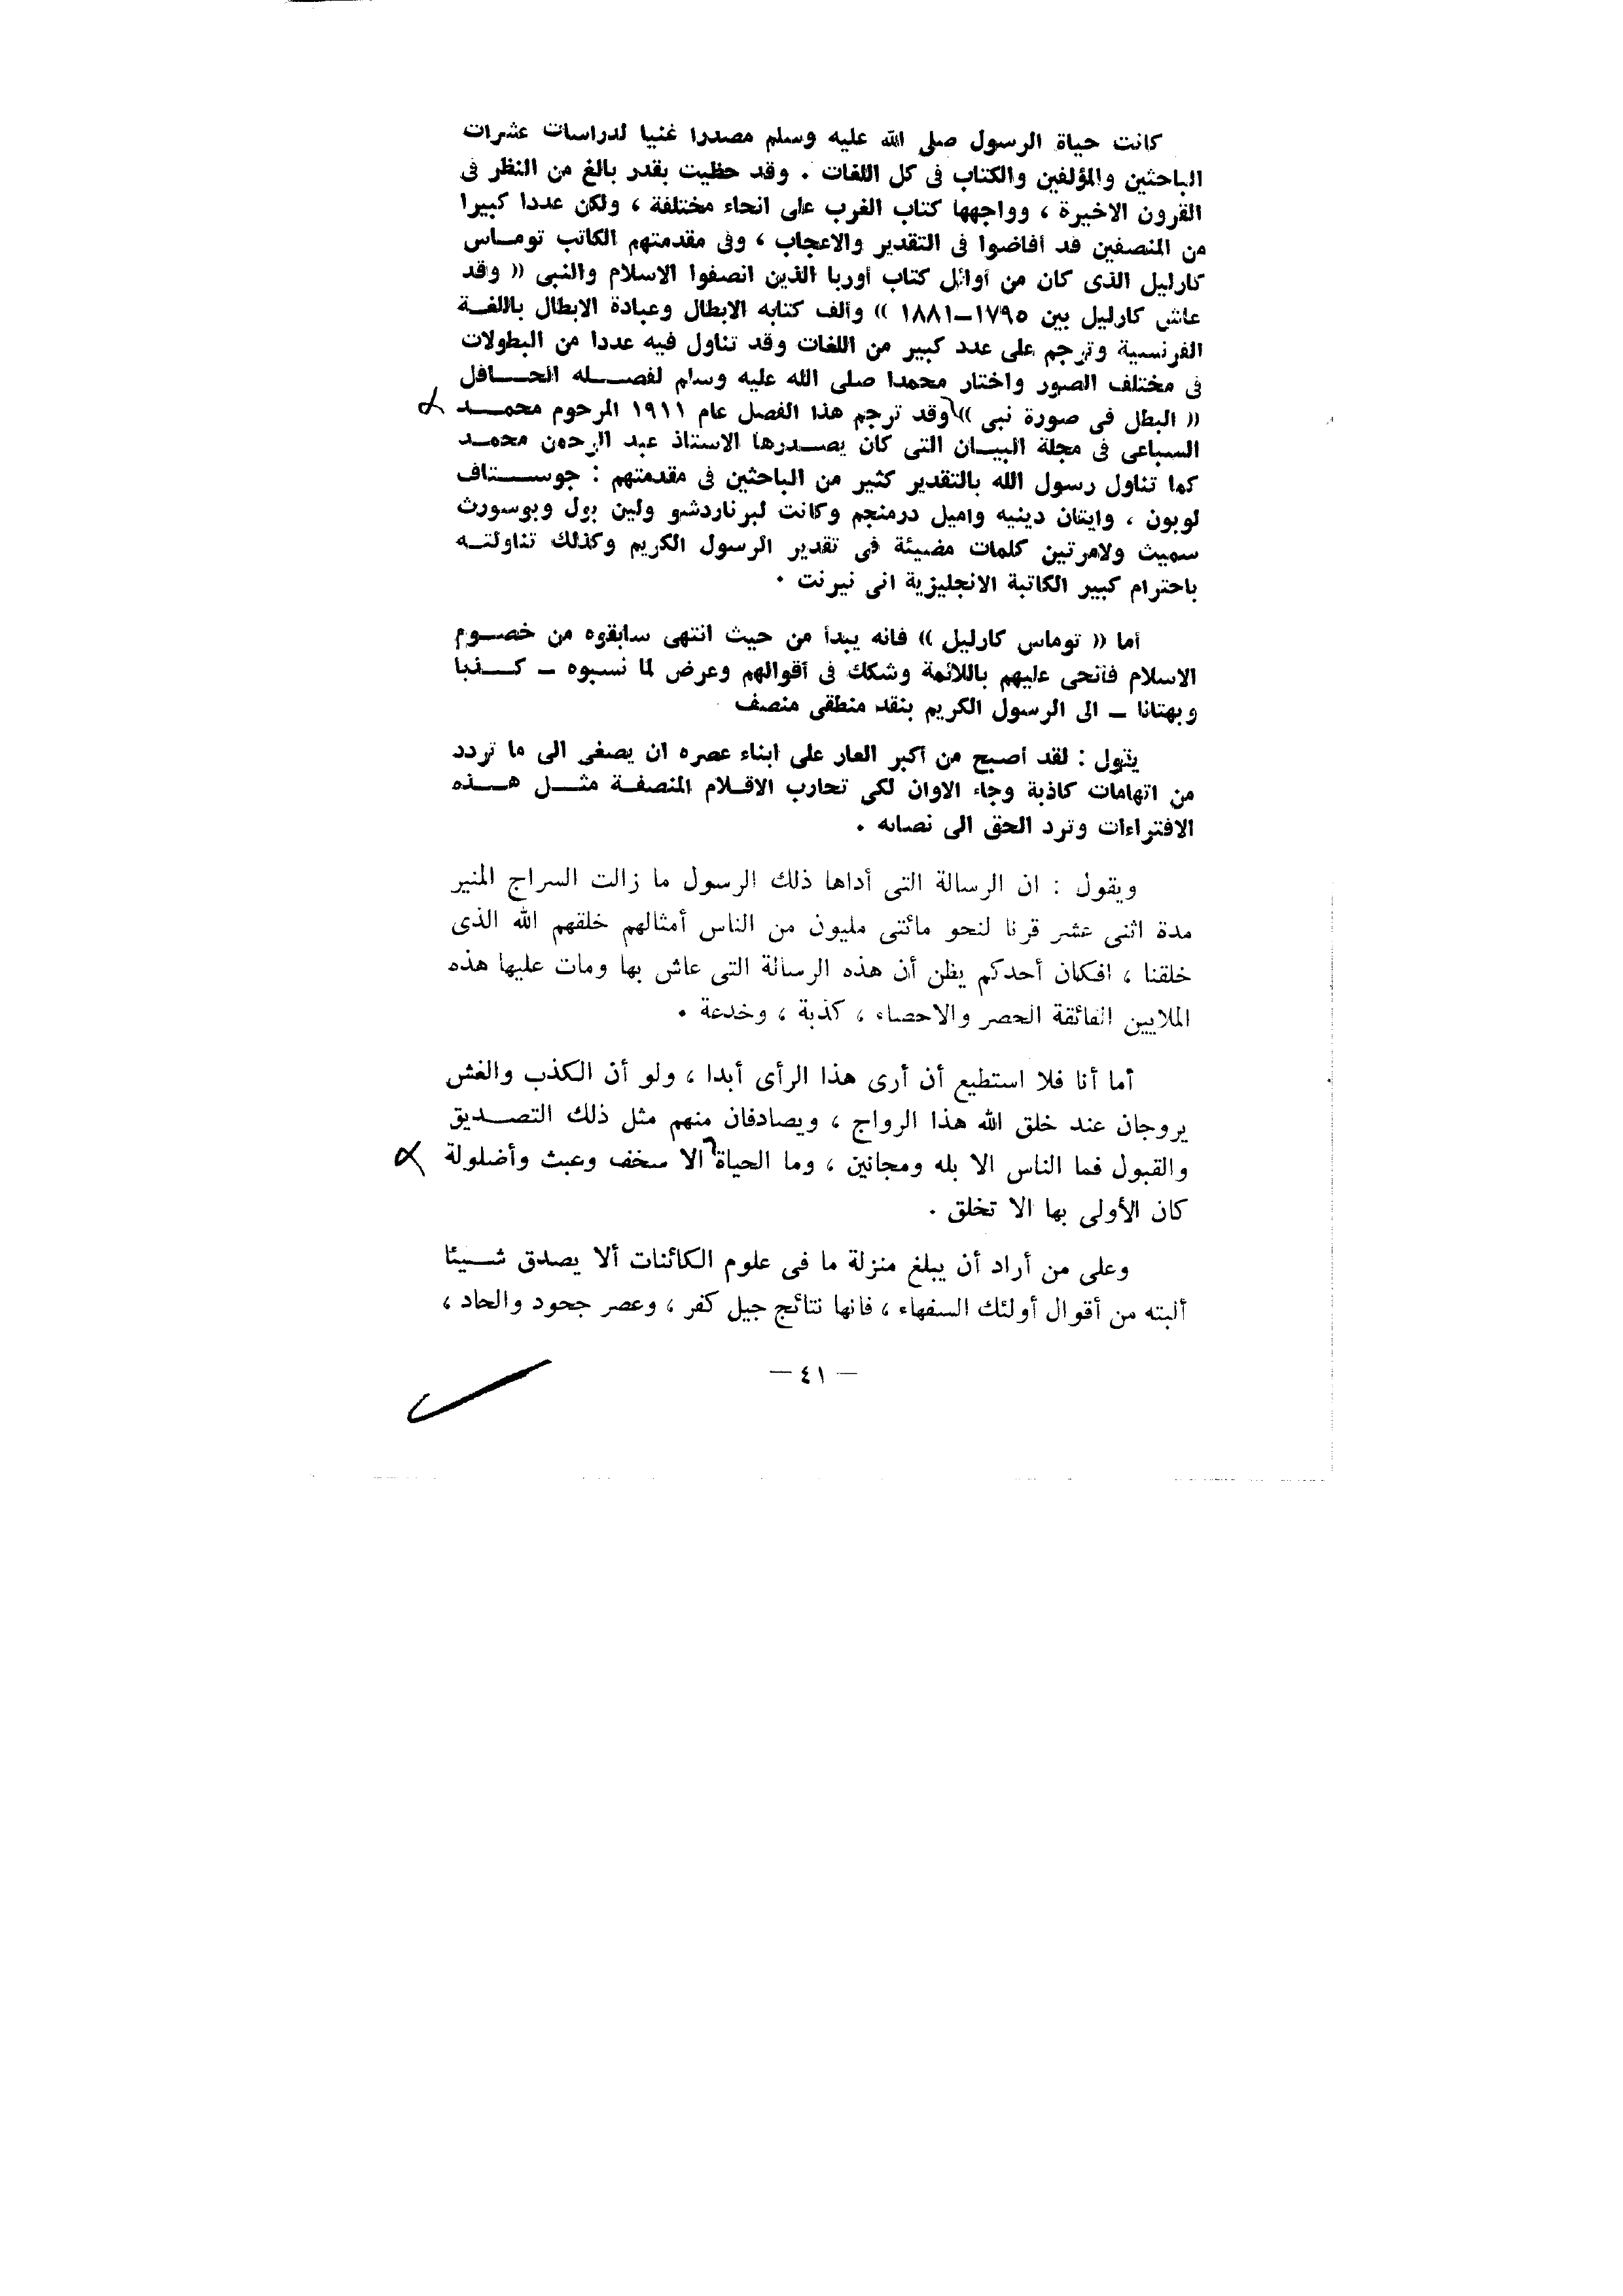 كانت حياة الرسول صلى الله عليه وسلم مصدرا غنيا لدراسات عشرات
الباحثين والمؤلفين والكتاب فى كل اللغات . وقد حظيت بقدر بالغ من النظر فى
القرون الاخيرة ، وواجهها كتاب الغرب على انحاء مختلفة ، ولكن عددا كبيرا
من المنصفين قد أفاضوا فى التقدير والاعجاب ، وفى مقدمتهم الكاتب تومــاس
كارليل الذى كان من أوائل كتاب أوربا الذين انصفوا الاسلام والنبى (( وقد
عاش كارليل بين ١٧٩٥–١٨٨١ )) وألف كتابه الابطال وعبادة الابطال باللغــة
الفرنسية وترجم على عدد كبير من اللغات وقد تناول فيه عددا من البطولات
فى مختلف الصور واختار محمدا صلى الله عليه وسلم لفصــله الحــافل
(( البطل فى صورة نبى )) وقد ترجم هذا الفصل عام ١٩١١ المرحوم محمــد
السباعى فى مجلة البيــان التى كان يصــدرها الاستاذ عبد الرحمن محمــد
كما تناول رسول الله بالتقدير كثير من الباحثين فى مقدمتهم : جوســتاف
لوبون ، وايتان دينيه واميل درمنجم وكانت لبرناردشو ولين بول وبوسورث
سميث ولامرتين كلمات مضيئة فى تقدير الرسول الكريم وكذلك تناولتــه
باحترام كبير الكاتبة الانجليزية انى نيرنت .
أما (( توماس كارليل )) فانه يبدأ من حيث انتهى سابقوه من خصــوم
الاسلام فأنحى عليهم باللائمة وشكك فى أقوالهم وعرض لما نسبوه – كــذبا
وبهتانا – الى الرسول الكريم بنقد منطقى منصف
يقول : لقد أصبح من أكبر العار على ابناء عصره ان يصغى الى ما تردد
من اتهامات كاذبة وجاء الاوان لكى تحارب الاقــلام المنصفــة مثــل هــذه
الافتراءات وترد الحق الى نصابه .
ويقول : ان الرسالة التى أداها ذلك الرسول ما زالت السراج المنير
مدة اثنى عشر قرنا لنحو مائتى مليون من الناس أمثالهم خلقهم الله الذى
خلقنا ، افكان أحدكم يظن أن هذه الرسالة التى عاش بها ومات عليها هذه
الملايين الفائقة الحصر والاحصاء ، كذبة ، وخدعة .
أما أنا فلا استطيع أن أرى هذا الرأى أبدا ، ولو أن الكذب والغش
يروجان عند خلق الله هذا الرواج ، ويصادفان منهم مثل ذلك التصــديق
والقبول فما الناس الا بله ومجانين ، وما الحياة الا سخف وعبث وأضلولة
كان الأولى بها الا تخلق .
وعلى من أراد أن يبلغ منزلة ما فى علوم الكائنات ألا يصدق شــيئا
ألبته من أقوال أولئك السفهاء ، فانها نتائج جيل كفر ، وعصر جحود والحاد ،
— ٤١ —